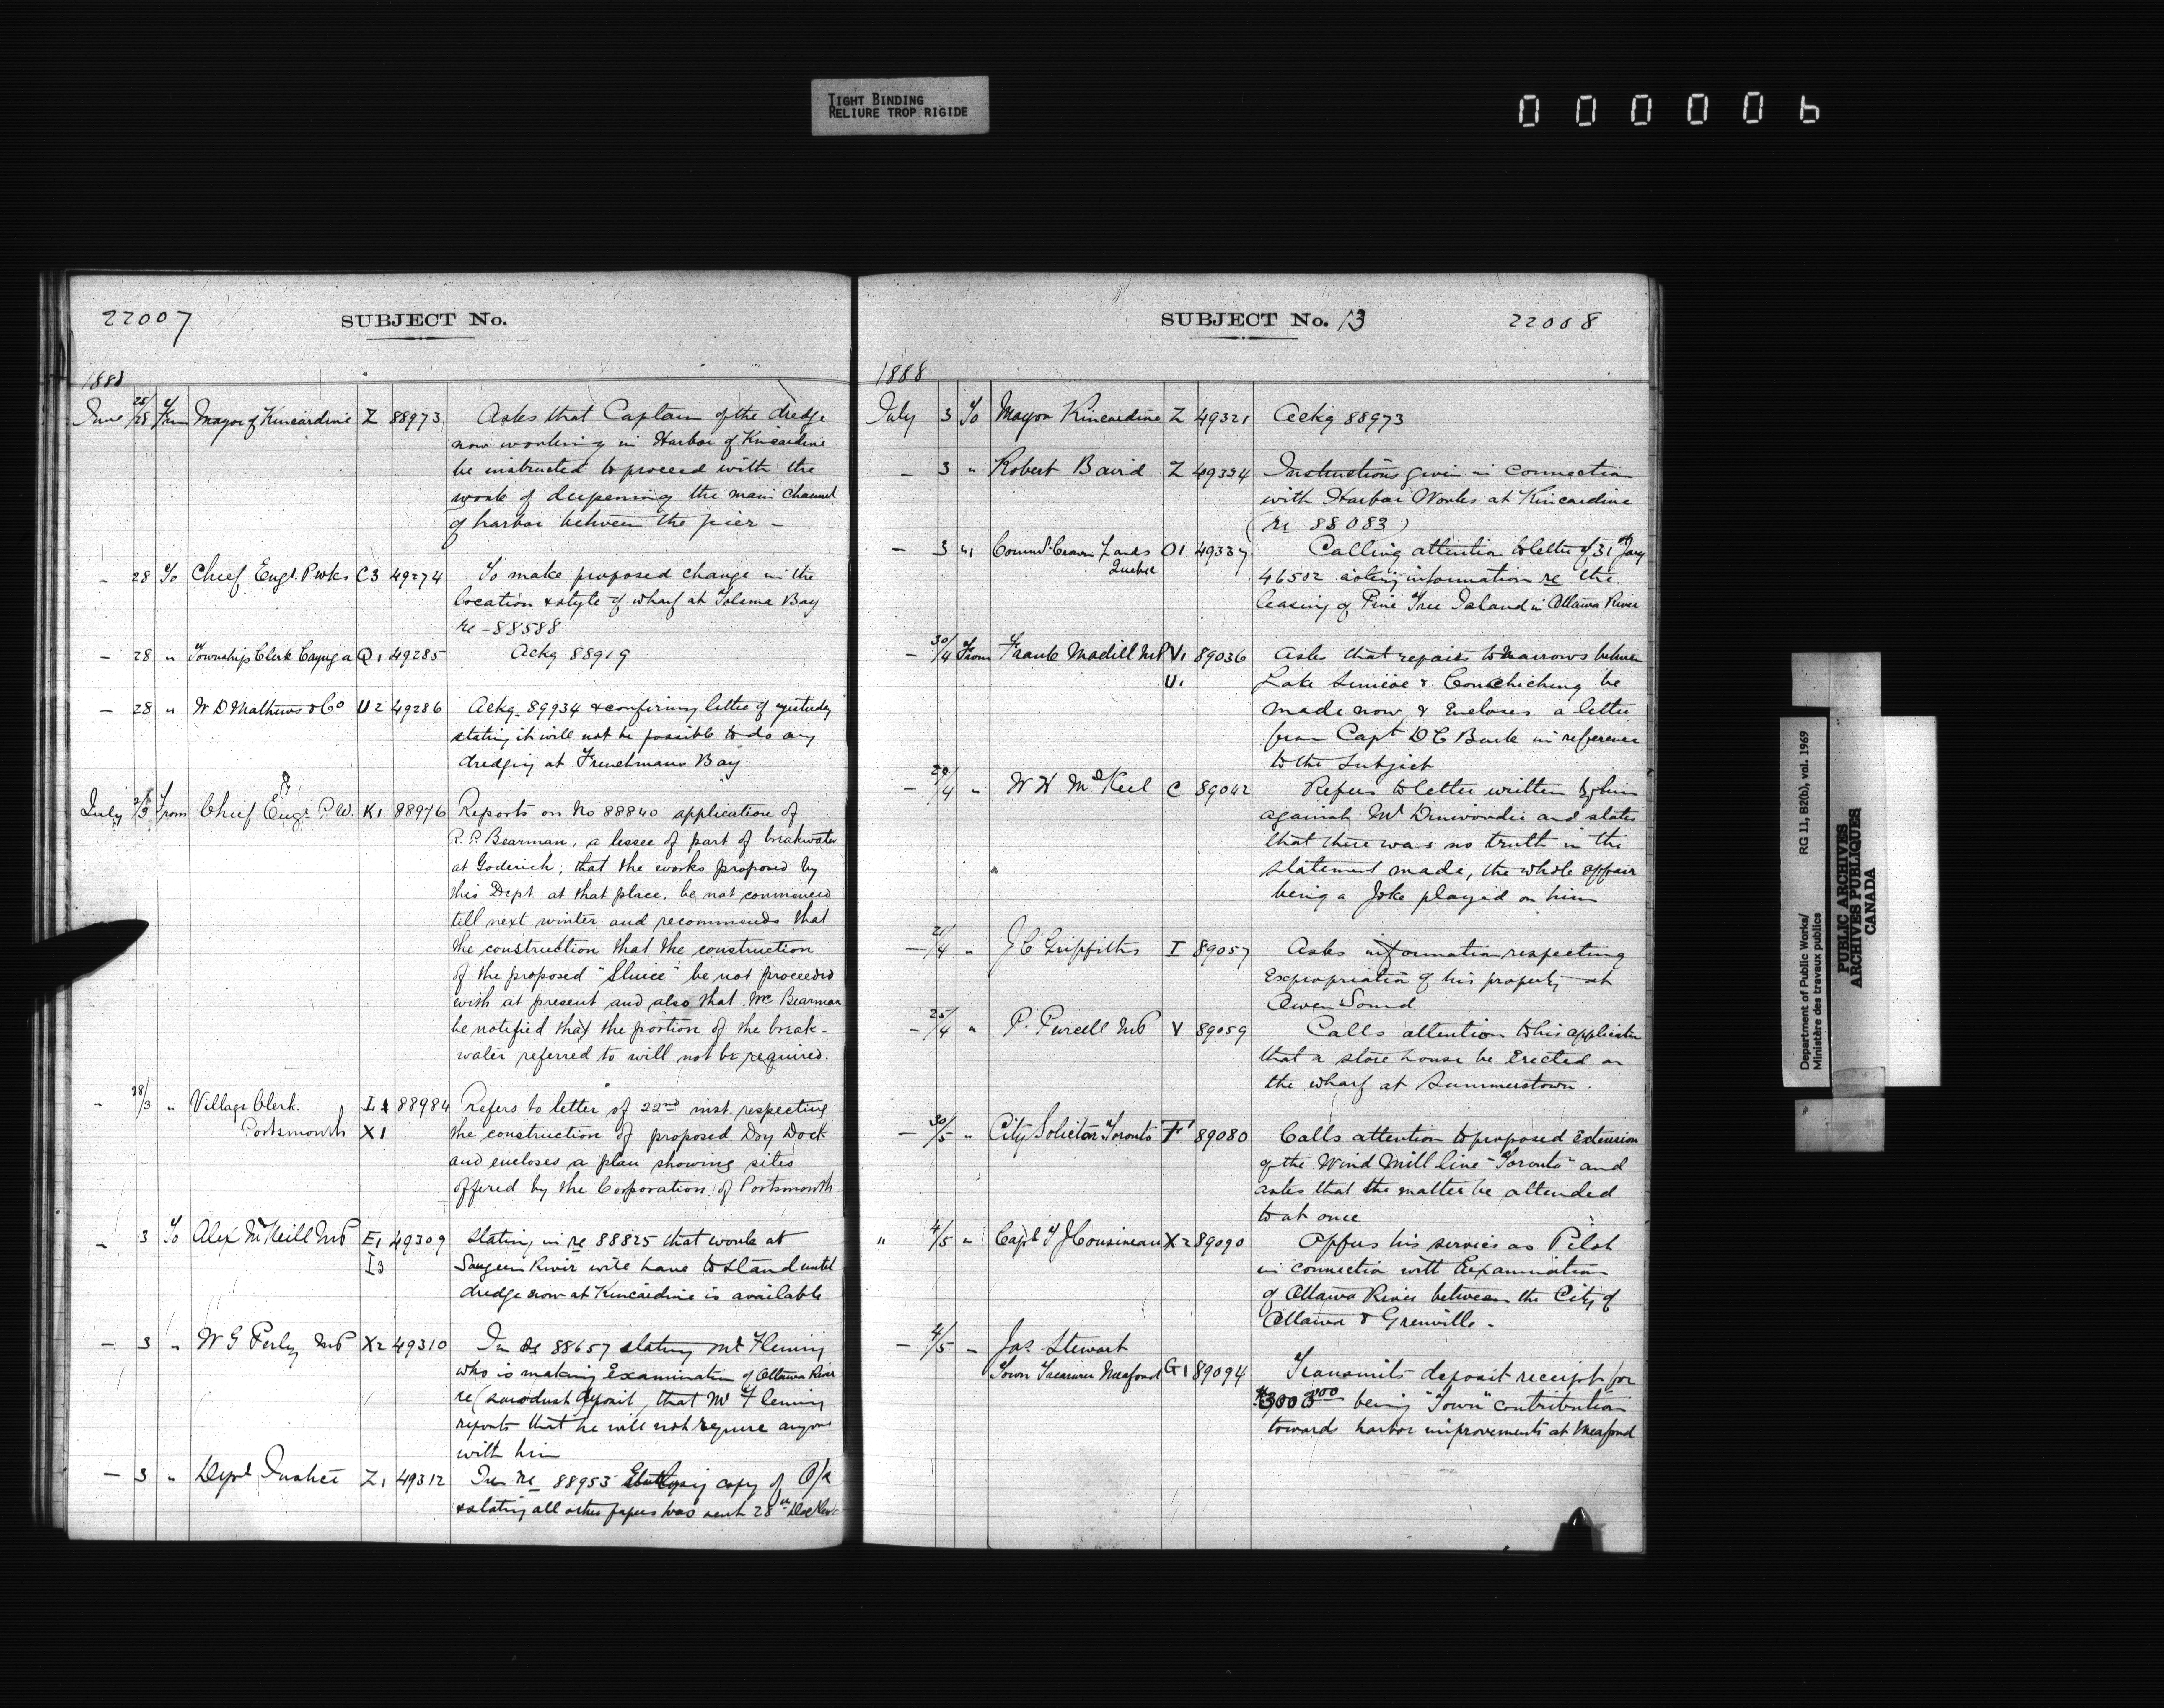 TIGHT BINDING
RELIURE TROP RIGIDE
000006
22007
SUBJECT No.
1888
June 25/28 From Mayor of Kincardine Z 88973 Asks that Captain of the dredge
now working in Harbor of Kincardine
be instructed to proceed with the
work of deepening the main channel
of harbor between the pier -
- 28 To Chief Engr. P. Wks C3 49274 To make proposed change in the
location & style of wharf at Bay
re - 88588
- 28 " Township Clerk Cayuga Q1 49285 Ackg 88919
- 28 " W D Mathews & Co U2 49286 Ackg 89934 & confirming letter of yesterday
stating it will not be possible to do any
dredging at Frenchmans Bay
July 2/3 From Chief Engr P. W. K1 88976 Reports on No 88840 application of
R. P. Bearman, a lessee of part of breakwater
at Goderich, that the works proposed by
this Dept. at that place, be not commenced
till next winter and recommends that
the construction that the construction
of the proposed "Sluice" be not proceeded
with at present and also that Mr Bearman
be notified that the portion of the break-
water referred to will not be required.
- 28/3 " Village Clerk. I 88984 Refers to letter of 22nd inst. respecting
Portsmouth X1 the construction of proposed Dry Dock
and encloses a plan showing sites
offered by the Corporation of Portsmouth
- 3 To Alex McNeill MP E1 49309 Stating in re 88825 that work at
I3 Saugeen River will have to stand until
dredge now at Kincardine is available
- 3 " W G Perley MP X2 49310 In re 88657 stating Mr Fleming
who is making Examination of Ottawa River
re (sawdust deposit, that Mr Fleming
reports that he will not require anyone
with him
- 3 " Dept Justice Z1 49312 In re 88953 copy of O/C
& stating all other papers was sent 28th
SUBJECT No. 13
22008
1888
July 3 To Mayor Kincardine Z 49321 Ackg 88973
- 3 " Robert Baird Z 49334 Instructions given in connection
with Harbor Works at Kincardine
(re 88083)
- 3 " Commr Crown Lands O1 49337 Calling attention to letter of 31st Jany
Quebec 46502 asking information re the
leasing of Pine Tree Island in Ottawa River
- 30/4 From Frank Madill MP V1 89036 Asks that repairs to Narrows between
U1 Lake Simcoe & Couchiching be
made now, & Encloses a letter
from Capt D C Burk in reference
to the Subject
- 29/4 " W H C 89042 Refers to letter written by him
against Mr Dinwoodie and states
that there was no truth in the
statement made, the whole affair
being a Joke played on him
- 21/4 " J C Griffiths I 89057 Asks information respecting
Expropriation of his property at
Owen Sound
- 25/4 " P. Purcell MP V 89059 Calls attention to his application
that a store house be Erected on
the wharf at Summerstown.
- 30/5 " City Solicitor Toronto F1 89080 Calls attention to proposed Extension
of the Wind Mill line "Toronto" and
asks that the matter be attended
to at once
" 4/5 " Capt F J Cousineau X2 89090 Offers his services as Pilot
in connection with Examination
of Ottawa River between the City of
Ottawa & Grenville.
- 4/5 " Jas Stewart
Town Treasurer Meaford G1 89094 Transmits deposit receipt for
$3000.00 being "Town" contribution
towards harbor improvements at Meaford
Department of Public Works/ RG 11, B2(b), vol. 1969
Ministère des travaux publics
PUBLIC ARCHIVES
ARCHIVES PUBLIQUES
CANADA